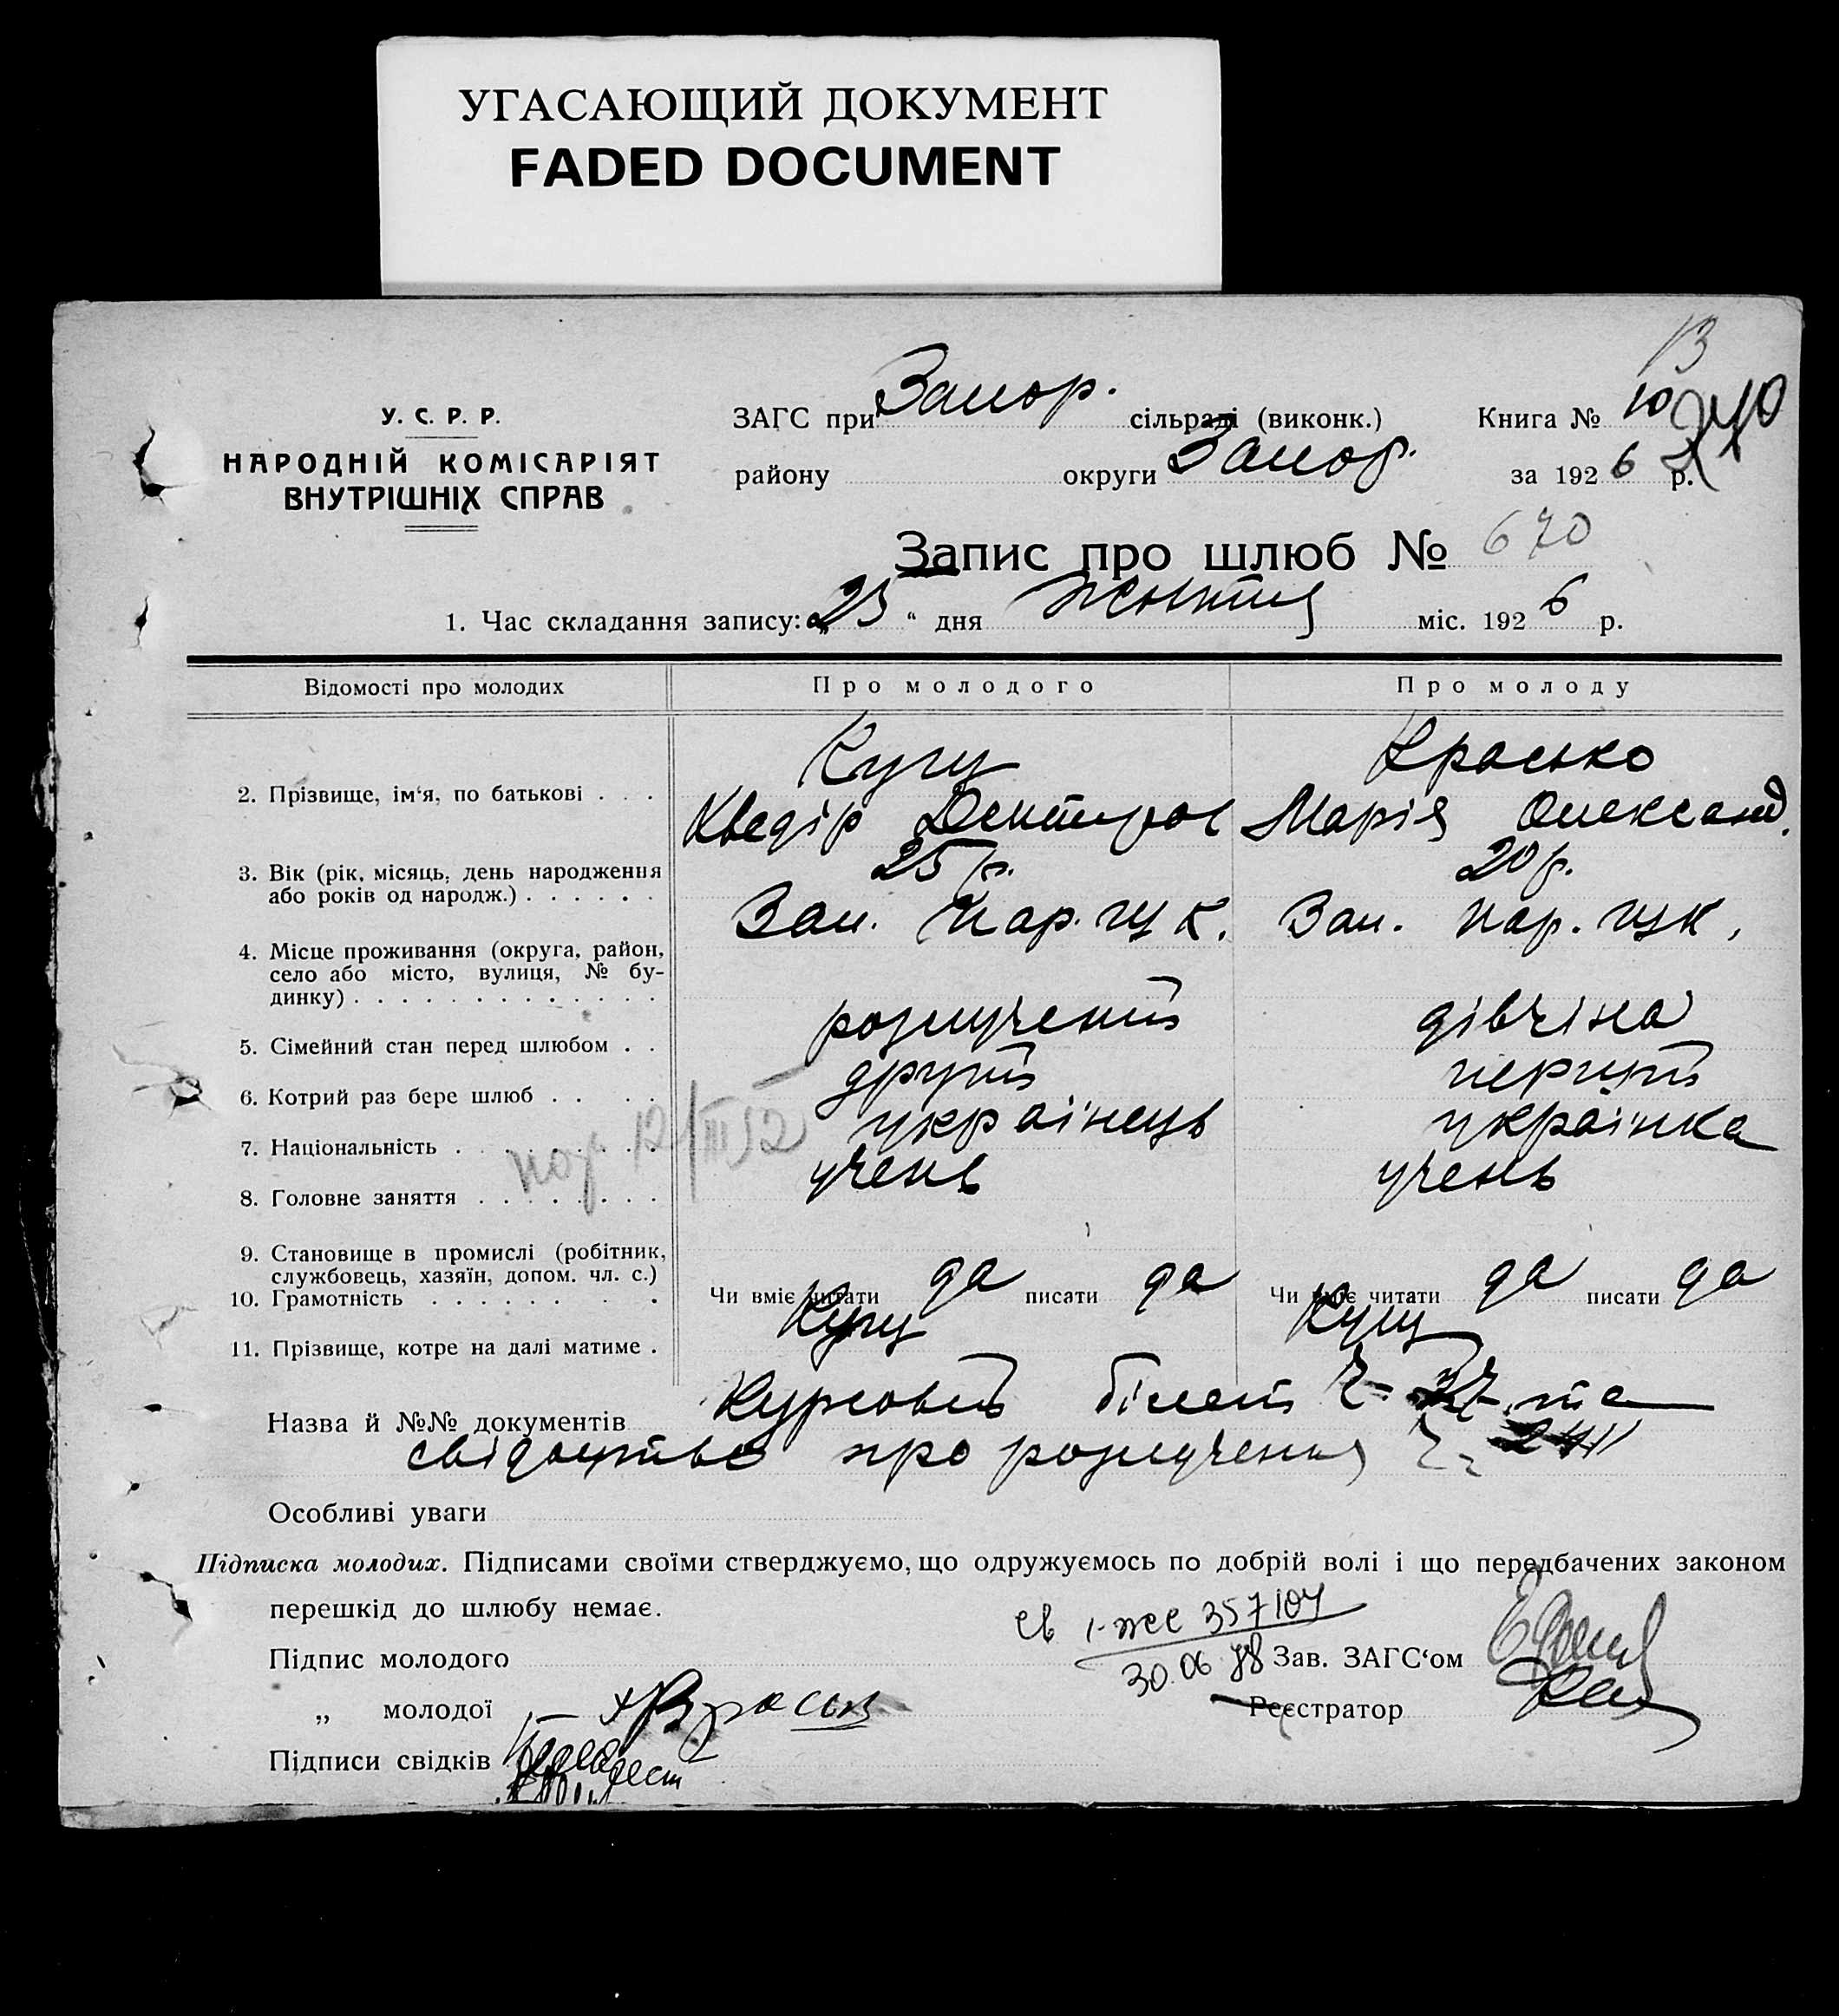 УГАСАЮЩИЙ ДОКУМЕНТ
FADED DOCUMENT
13
У. С. Р. Р.
НАРОДНІЙ КОМІСАРІЯТ
ВНУТРІШНІХ СПРАВ
ЗАГС при Запор. сільраді (виконк.) Книга № 10
210
району округи Запор. за 1926 р.
Запис про шлюб № 670
1. Час складання запису: „25“ дня Жовтня міс. 1926 р.
Відомості про молодих Про молодого Про молоду
2. Прізвище, ім‘я, по батькові . . . Кущ Красько
Хведір Дмитров Марія Олександ.
3. Вік (рік, місяць, день народження
або років од народж.) . . . . . . 25 р. 20 р.
4. Місце проживання (округа, район,
село або місто, вулиця, № бу-
динку) . . . . . . . . . . . . . Зап. Зап.
5. Сімейний стан перед шлюбом . . розлучений дівчіна
6. Котрий раз бере шлюб . . . . другий перший
7. Національність . . . . . . . . українець українка
12/III 52
8. Головне заняття . . . . . . . . учень учень
9. Становище в промислі (робітник,
службовець, хазяїн, допом. чл. с.)
10. Грамотність . . . . . . . . Чи вміє читати да писати да Чи вміє читати да писати да
11. Прізвище, котре на далі матиме . Кущ Кущ
Назва й №№ документів Курсовий білет Ч- та
свідоцтво про розлучення Ч-
Особливі уваги
Підписка молодих. Підписами своїми стверджуємо, що одружуємось по добрій волі і що передбачених законом
перешкід до шлюбу немає.
св 1-жс 357107
Підпис молодого 30.06 Зав. ЗАГС‘ом
„ молодої Реєстратор
Підписи свідків